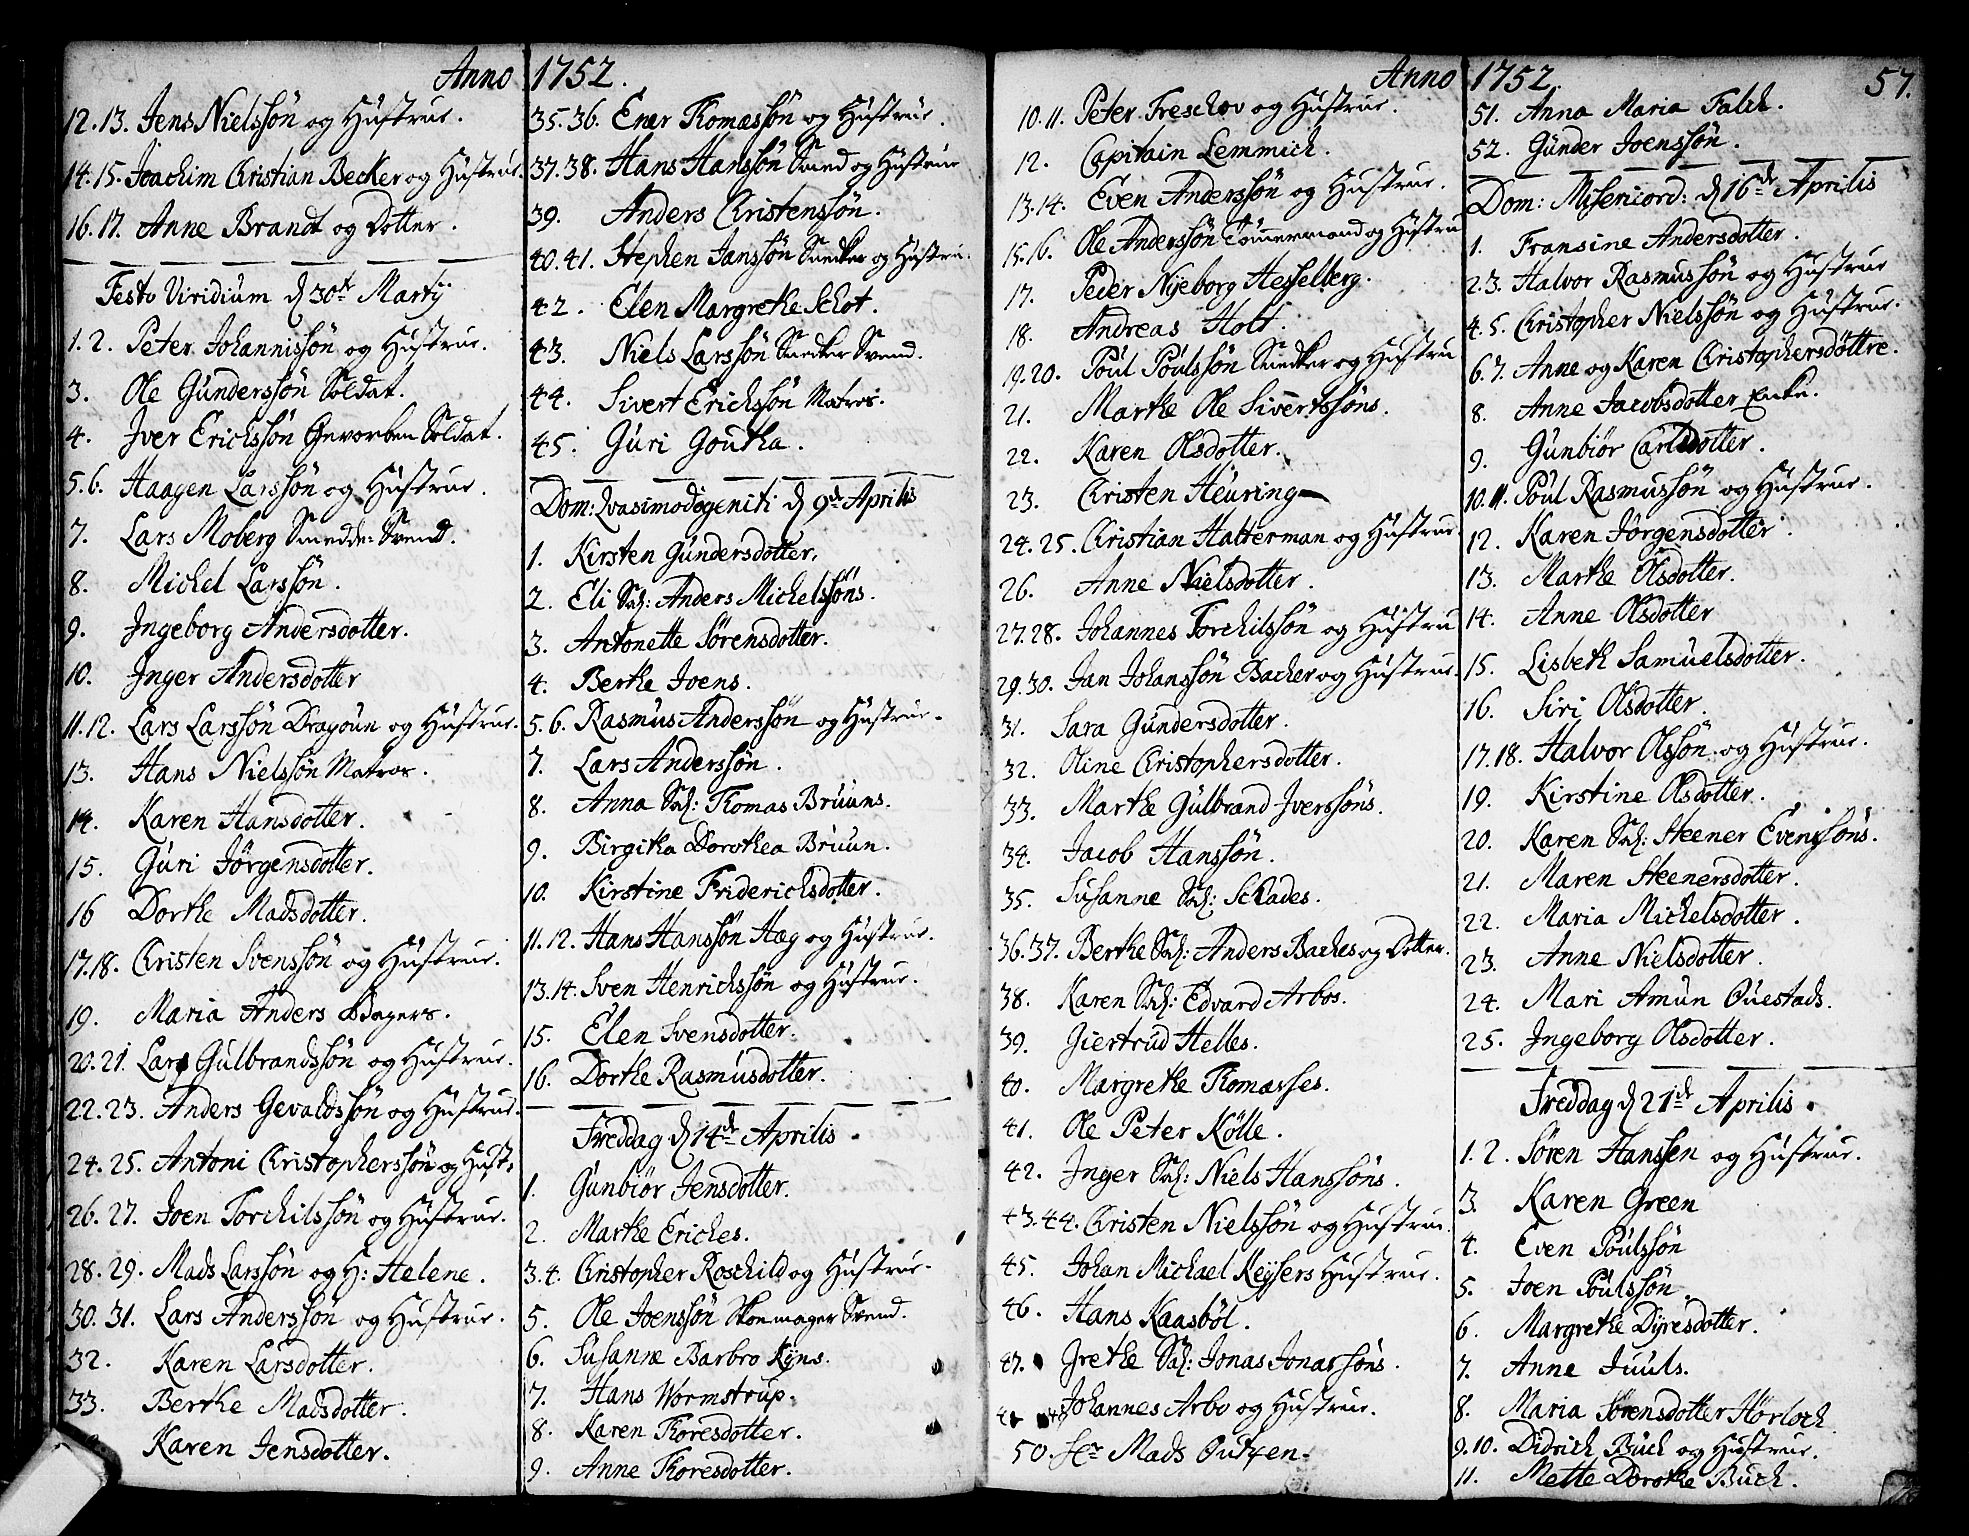 Anno 1752.
12.13. Jens Nielssön og Hustrue.
14.15. Joachim Christian Becker og Hustrue.
16.17. Anne Brandt og Dotter.
Festo Viridium d 30te Martij
1.2. Peter Johannissön og Hustrue.
3. Ole Gunderssön Soldat.
4. Jver Erichssön Gevorben Soldat.
5.6. Haagen Larssön og Hustrue.
7. Lars Moberg Smedde-Svend.
8. Michel Larssön.
9. Jngeborg Andersdotter.
10. Jnger Andersdotter
11.12. Lars Larssön Dragoun og Hustrue.
13. Hans Nielssön Matros.
14. Karen Hansdotter.
15. Guri Jörgensdotter.
16 Dorthe Madsdotter.
17.18. Christen Svenssön og Hustrue.
19. Maria Anders
20.21. Lars Gulbrandssön og Hustrue.
22.23. Anders Gevaldssön og Hustrue.
24.25. Antoni Christopherssön og Hust.
26.27. Joen Torchilssön og Hustrue.
28.29. Mads Larssön og H: Helene.
30.31. Lars Anderssön og Hustrue.
32. Karen Larsdotter.
33. Berthe Madsdotter.
Karen Jensdotter.
35.36. Ener Thomassön og Hustrue.
37.38. Hans Hanssön Smed og Hustrue
39. Anders Christenssön.
40.41. Stephen Janssön Snedker og Hustru.
42. Elen Margrethe Schot.
43. Niels Larssön Snedker Svend.
44. Sivert Erichssön Matros.
45. Guri Goutha.
Dom: Qvasimodogeniti d 9de Aprilis
1. Kirsten Gundersdotter.
2. Eli Sal: Anders Michelssöns.
3. Antonette Sörensdotter.
4. Berthe Joens.
5.6. Rasmus Anderssön og Hustrue.
7. Lars Anderssön.
8. Anna Sal: Thomas Bruuns.
9. Birgitha Dorothea Bruun.
10. Kirstine Friderichsdotter.
11.12. Hans Hanssön Hæg og Hustrue.
13.14. Sven Henrichssön og Hustrue.
15. Elen Svensdotter.
16. Dorthe Rasmusdotter.
Freddag d 14de Aprilis.
1. Gunbiör Jensdotter.
2. Marthe Eriches.
3.4. Christopher Roschild og Hustrue.
5. Ole Joenssön Skoemager Svend.
6. Susanne Barbro Kyns.
7. Hans Wormstrup.
8. Karen Thoresdotter.
9. Anne Thoresdotter.
Anno 1752. 57.
10.11. Peter Treschov og Hustrue.
12. Capitain Lemmich.
13.14. Even Anderssön og Hustrue.
15.16. Ole Anderssön Tömmermand og Hustru
17. Peder Nyeborg Hesselberg.
18. Andreas Holt.
19.20. Poul Poulssön Snedker og Hustru
21. Marthe Ole Sivertssöns.
22. Karen Olsdotter.
23. Christen Heuring
24.25. Christian Halterman og Hustrue.
26. Anne Nielsdotter.
27.28. Johannes Torchilssön og Hustru
29.30. Jan Johanssön Bacher og Hustrue.
31. Sara Gundersdotter.
32. Oline Christophersdotter.
33. Marthe Gulbrand Jverssöns.
34. Jacob Hanssön.
35. Susanne Sal: Schades.
36.37. Berthe Sal: Anders Baches og Dotter.
38. Karen Sal: Edvard Arbos.
39. Giertrud Helles.
40. Margrethe Thomasses.
41. Ole Peter Kölle.
42. Jnger Sal: Niels Hanssöns.
43.44. Christen Nielssön og Hustrue.
45. Johan Michael Keysers Hustrue.
46. Hans Kaasböl.
47. Grethe Sal: Jonas Jonassöns.
Johannes Arbo og Hustrue.
50. Sr Mads
51. Anna Maria Falch.
52. Gunder Joenssön.
Dom: Misericord: d 16de Aprilis
1. Fransine Andersdotter.
2.3. Halvor Rasmussön og Hustrue
4.5. Christopher Nielssön og Hustrue.
6.7. Anne og Karen Christophersdöttre.
8. Anne Jacobsdotter Enke.
9. Gunbiör Carlsdotter.
10.11. Poul Rasmussön og Hustrue.
12. Karen Jörgensdotter.
13. Marthe Olsdotter.
14. Anne Olsdotter
15. Lisbeth Samuelsdotter.
16. Siri Olsdotter.
17.18. Halvor Olssön og Hustrue.
19. Kirstine Olsdotter.
20. Karen Sal: Steener Evenssöns.
21. Maren Steenersdotter.
22. Maria Michelsdotter.
23. Anne Nielsdotter.
24. Mari Amun Questads.
25. Jngeborg Olsdotter.
Freddag d 21de Aprilis.
1.2. Sören Hanssen og Hustrue.
3. Karen Green
4. Even Poulssön
5. Joen Poulssön.
6. Margrethe Dyresdotter.
7. Anne Juuls.
8. Maria Sörensdotter Hörloch
9.10. Didrich Buch og Hustrue.
11. Mette Dorothe Buch.